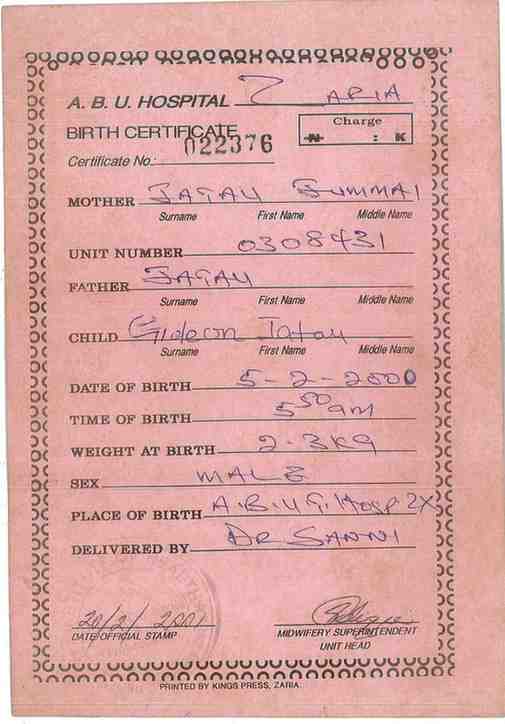 A. B. U. HOSPITAL ZARIA
BIRTH CERTIFICATE
Charge
N : K
Certificate No.: 022376
MOTHER JATAU JUMMAI
Surname First Name Middle Name
UNIT NUMBER 0308431
FATHER JATAU
Surname First Name Middle Name
CHILD Gideon Jatau
Surname First Name Middle Name
DATE OF BIRTH 5-2-2000
TIME OF BIRTH 5 50 am
WEIGHT AT BIRTH 2.3kg
SEX MALE
PLACE OF BIRTH A.B.U.T. Hosp ZX
DELIVERED BY DR SANNI
20/2/2001
DATE/OFFICIAL STAMP MIDWIFERY SUPERINTENDENT
UNIT HEAD
PRINTED BY KINGS PRESS, ZARIA.